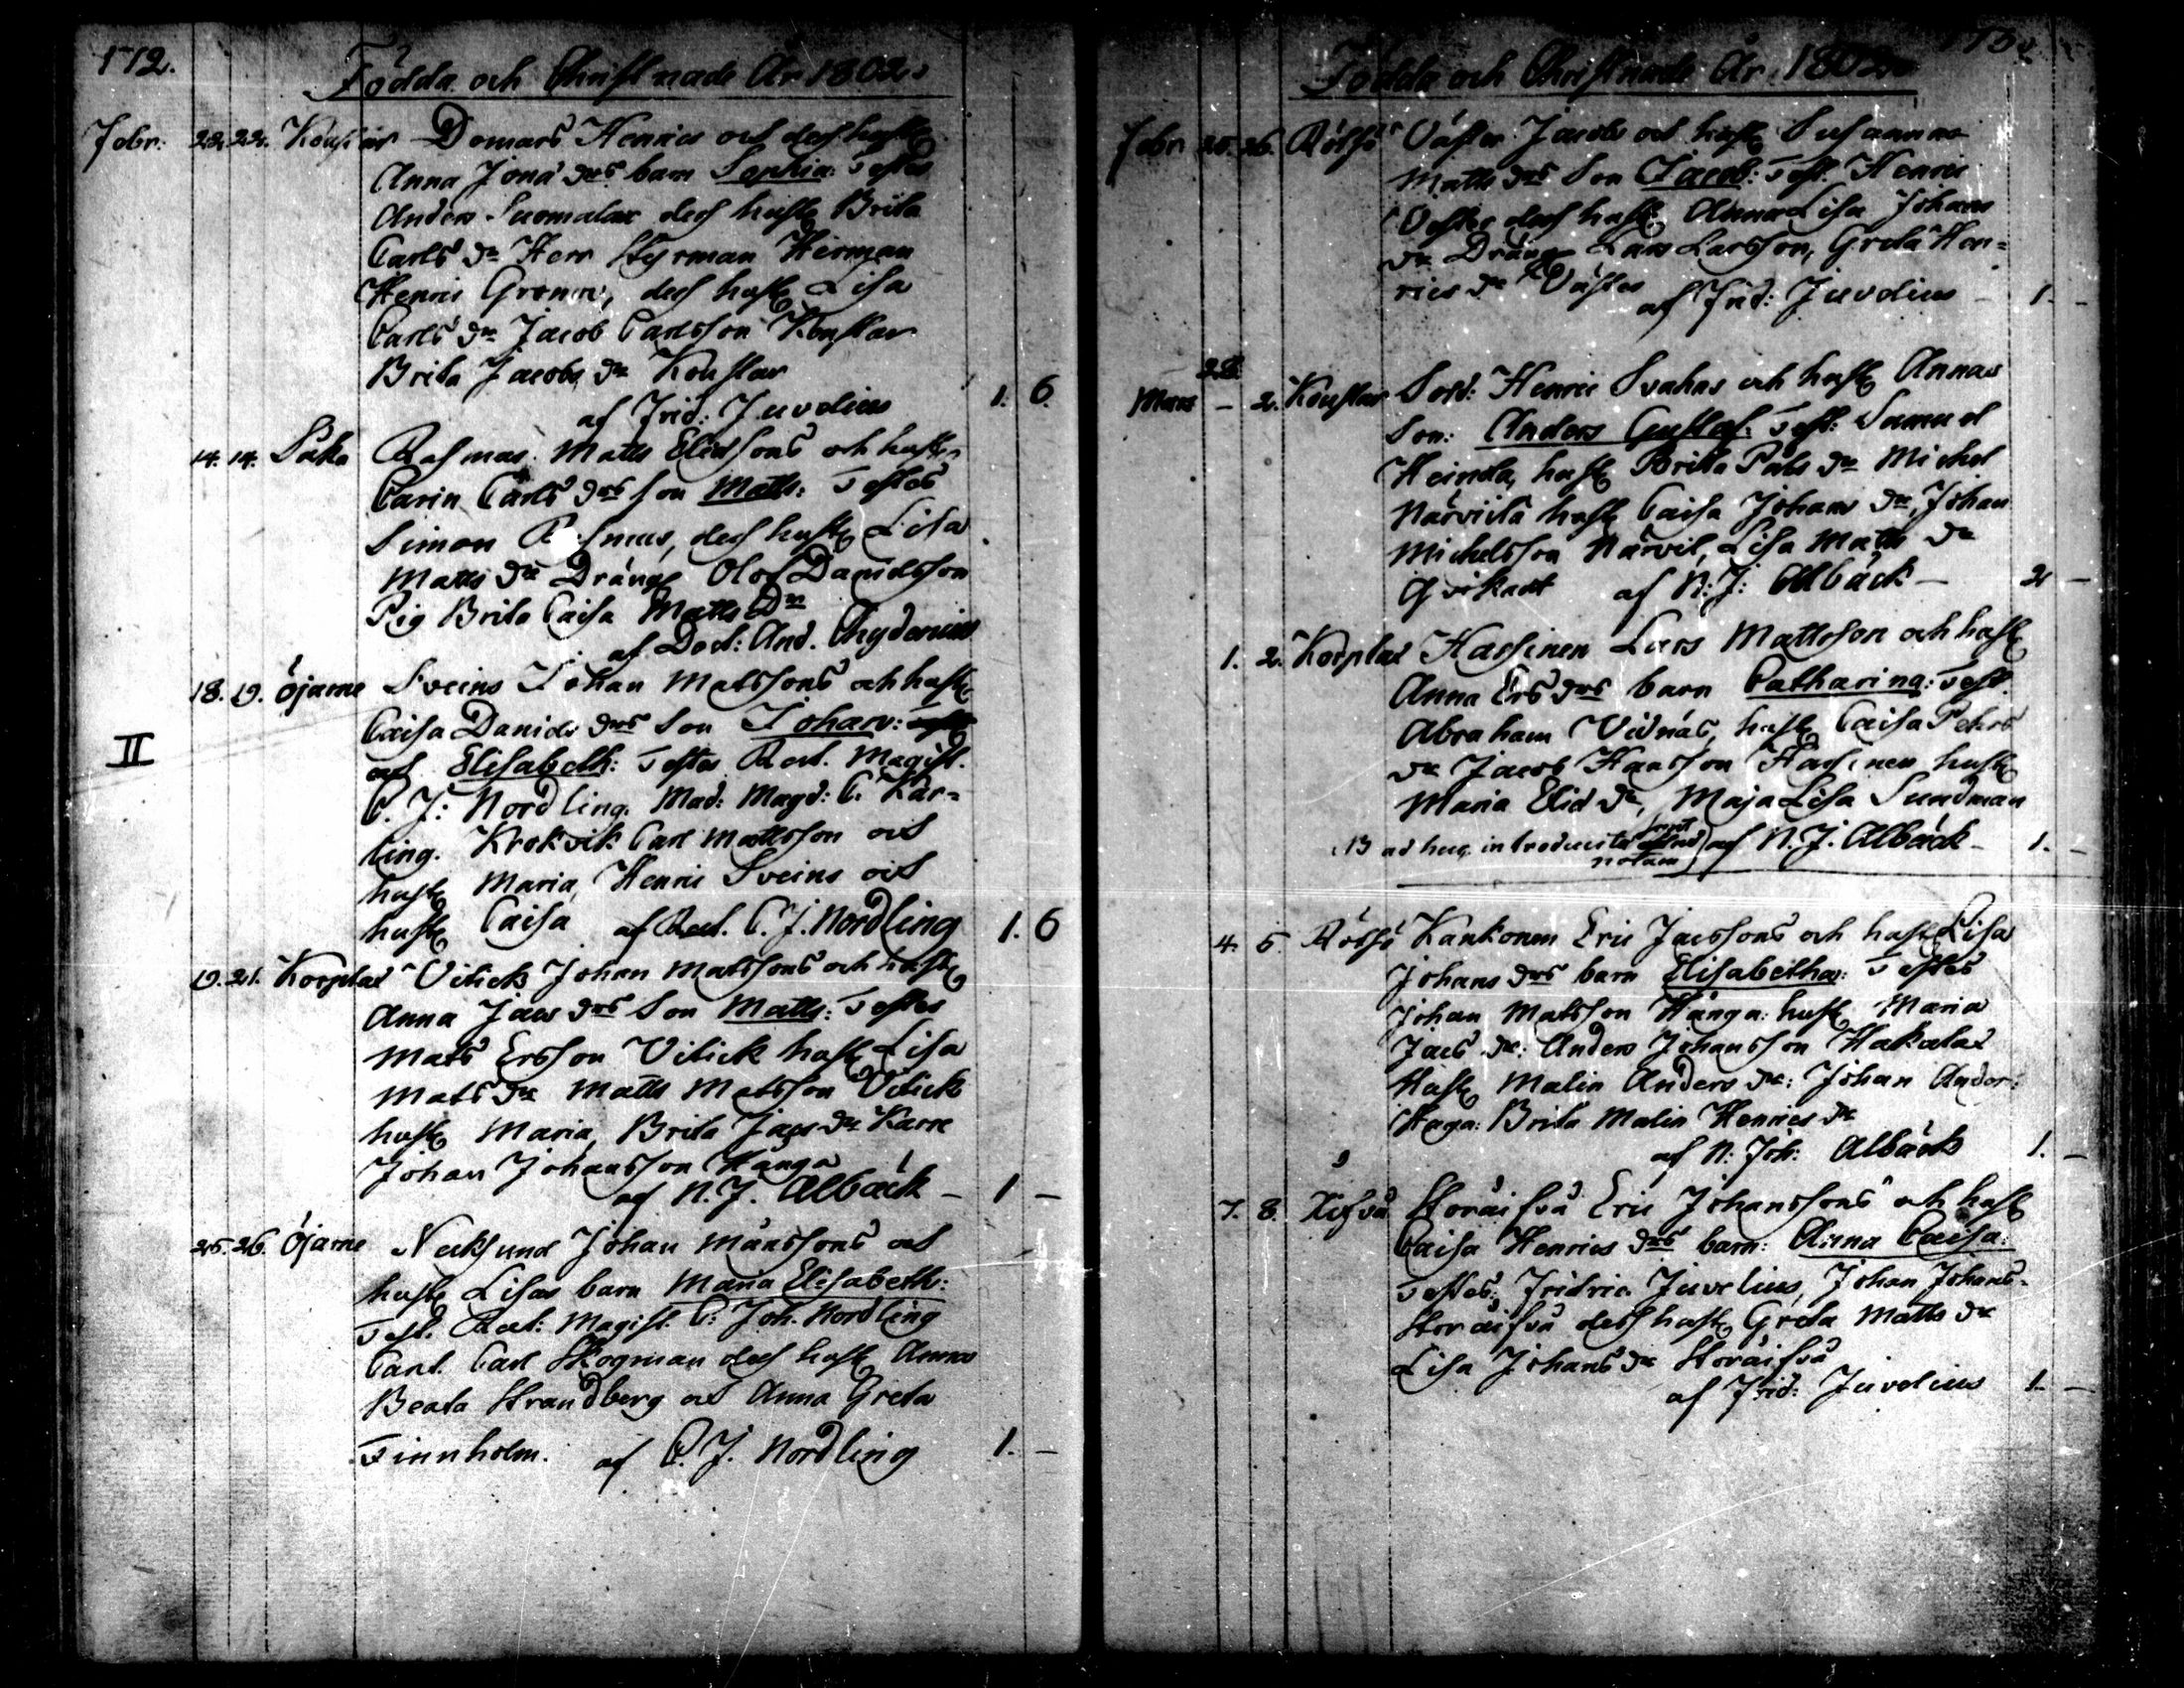 172.
Födda och Christnade År 1802.
Febr. 22. 22. Kouslar Domars Henrics och dess hustr
Anna Jona drs barn Sophia: Testes
Anders Suomalax dess hustr Brita
Carls dr Herr Styrman Herman
Henric Gronow, dess hustr Lisa
Carls dr Jacob Carlsson Kouslar
Brita Jacobs dr Kouslar
af Frid: Juvelius 1. 6.
14. 14. Såka Rasmas Matts Elidsons och hustr
Carin Carls drs son Matts: Testes
Simon Rasmus, dess hustr Lisa
Matts dr Dräng Olof Danielsson
Pig Brita Caisa Matts Dr
af Doct: And. Chydenius
18. 19. Öjarne Sveins Johan Matssons och hustr
Caisa Daniels drs Son Johan:
och Elisabeth: Testes Rect. Magist.
C. J: Nordling. Mad: Magd: C. Kär-
ling. Krokvik Carl Mattsson och
hustr Maria, Henric Sveins och
hustr Caisa af Rect. C. J. Nordling 1. 6
II
19. 21. Korplax Vitick Johan Matssons och hustr
Anna Jacs drs Son Matts: Testes
Mats Ersson Vitick hustr Lisa
Mats dr Matts Matsson Vitick
hustr Maria, Brita Jacs dr Karre
Johan Johansson Hånga
af N. J. Albäck – 1 –
25. 26. Öjarne Necksund Johan Månssons och
hustr Lisas barn Maria Elisabeth:
Test. Rect: Magist. C: Joh. Nordling
Cant. Carl Skogman dess hustr Anna
Beata Strandberg och Anna Greta
Finnholm. af C. J. Nordling 1. –
Födda och Christnade År 1802
Febr 25. 26. Rölsö Väster Jacobs och hustr Susanna
Matts drs Son Jacob: Test. Henric
Vester dess hustr Anna Lisa Johans
dr Dräng Lars Larsson, Greta Hen-
rics dr Västes
af Frid: Juvelius – 1 –
28
Mars – 2. Kouslar Sold: Henric Svahns och hustr Annas
Son: Anders Gustaf: Test: Samuel
Heinda, hustr Brita Pals dr Michel
Närviilä hustr Caisa Johans dr, Johan
Michelsson Närvil, Lisa Matts dr
af N: J: Albäck – 2 –
1. 2. Korplax Hassinen Lars Mattsson och hustr
Anna Ers drs barn Catharina: Test.
Abraham Vidnäs, hustr Caisa Pehrs
dr Jacob Hansson Hassinen hustr
Maria Elid dr, Maja Lisa Sundman
NB ad huc introducita notam af N. J. Albäck – 1. –
4. 5. Rölsö Kankonen Eric Jacssons och hustr Lisa
Johans drs barn Elisabetha: Testes
Johan Matsson Hånga: hustr Maria
Jacs dr: Anders Johansson Hakalax
Hustr Malin Anders dr: Johan Anders:
Haga: Brita Malin Henrics dr
af N: Joh: Albäck 1. –
7. 8. Storäisvå Eric Johanssons och hustr
Caisa Henrics drs barn: Anna Caisa:
Testes: Fridric Juvelius, Johan Johans-
Storäisvå dess hustr Greta Matts dr
Lisa Johans dr Storäisvå
af Frid: Juvelius 1. –